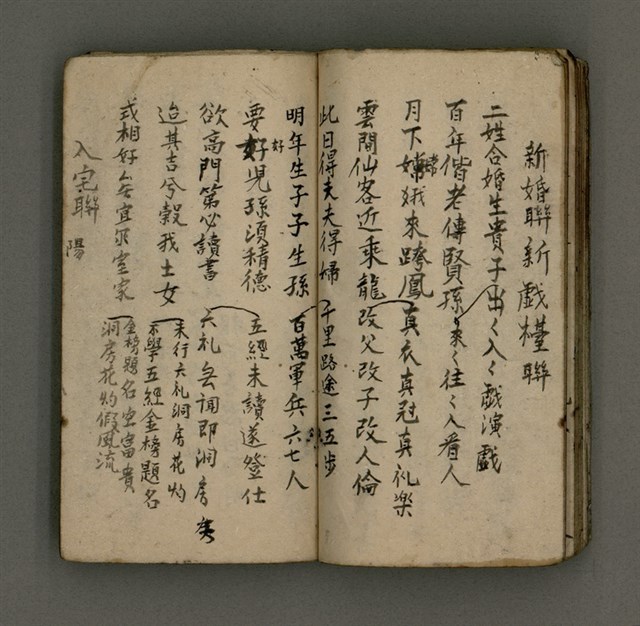 新婚聯新戲檯聯
二姓合婚生貴子出〻入〻戲演戲
百年偕老傳賢孫來〻往〻人看人
月下嫦娥來跨鳳真衣真冠真礼楽
雲間仙客近乘龍改父改子改人倫
此日得夫夫得婦千里路途三五步
明年生子子生孫百萬軍兵六七人
要好兒孫須積德五經未讀遂登仕
欲高門第必讀書六礼無调即洞房
迨其吉兮穀我士女未行六礼洞房花灼
不學五經金榜題名
式相好無宜尔室家金榜題名空富貴
洞房花灼假風流
入宅聯 陽